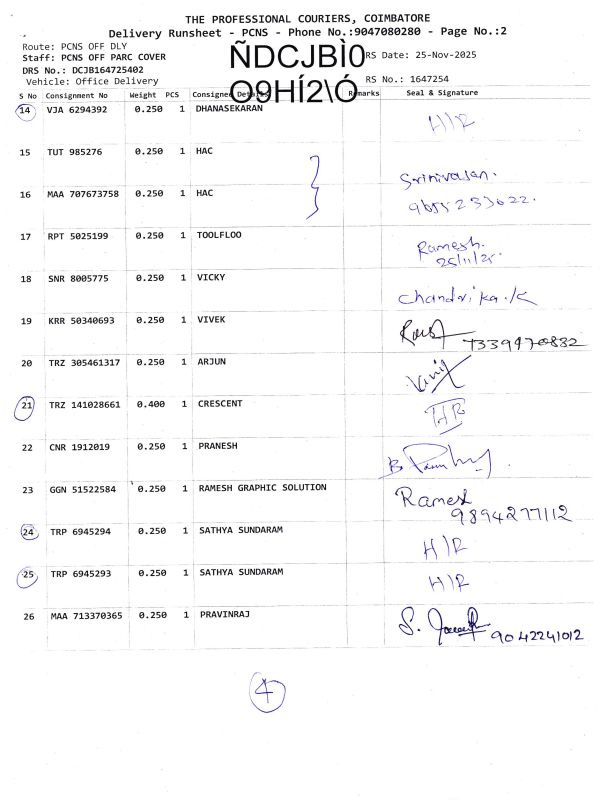 THE PROFESSIONAL COURIERS, COIMBATORE
Delivery Runsheet - PCNS - Phone No.:9047080280 - Page No.:2
Route: PCNS OFF DLY
Staff: PCNS OFF PARC COVER
ÑDCJBÌ0
RS Date: 25-Nov-2025
DRS No.: DCJB164725402
Vehicle: Office Delivery
O9HÍ2\Ó
RS No.: 1647254
S No Consignment No Weight PCS Consignee Details Remarks Seal & Signature
14 VJA 6294392 0.250 1 DHANASEKARAN H/R
15 TUT 985276 0.250 1 HAC Srinivasan.
16 MAA 707673758 0.250 1 HAC
17 RPT 5025199 0.250 1 TOOLFLOO Ramesh. 25/11/25
18 SNR 8005775 0.250 1 VICKY Chandrika.K
19 KRR 50340693 0.250 1 VIVEK 7339970882
20 TRZ 305461317 0.250 1 ARJUN
21 TRZ 141028661 0.400 1 CRESCENT
22 CNR 1912019 0.250 1 PRANESH
23 GGN 51522584 0.250 1 RAMESH GRAPHIC SOLUTION Ramesh 9894277112
24 TRP 6945294 0.250 1 SATHYA SUNDARAM H/R
25 TRP 6945293 0.250 1 SATHYA SUNDARAM H/R
26 MAA 713370365 0.250 1 PRAVINRAJ S. 9042241012
4